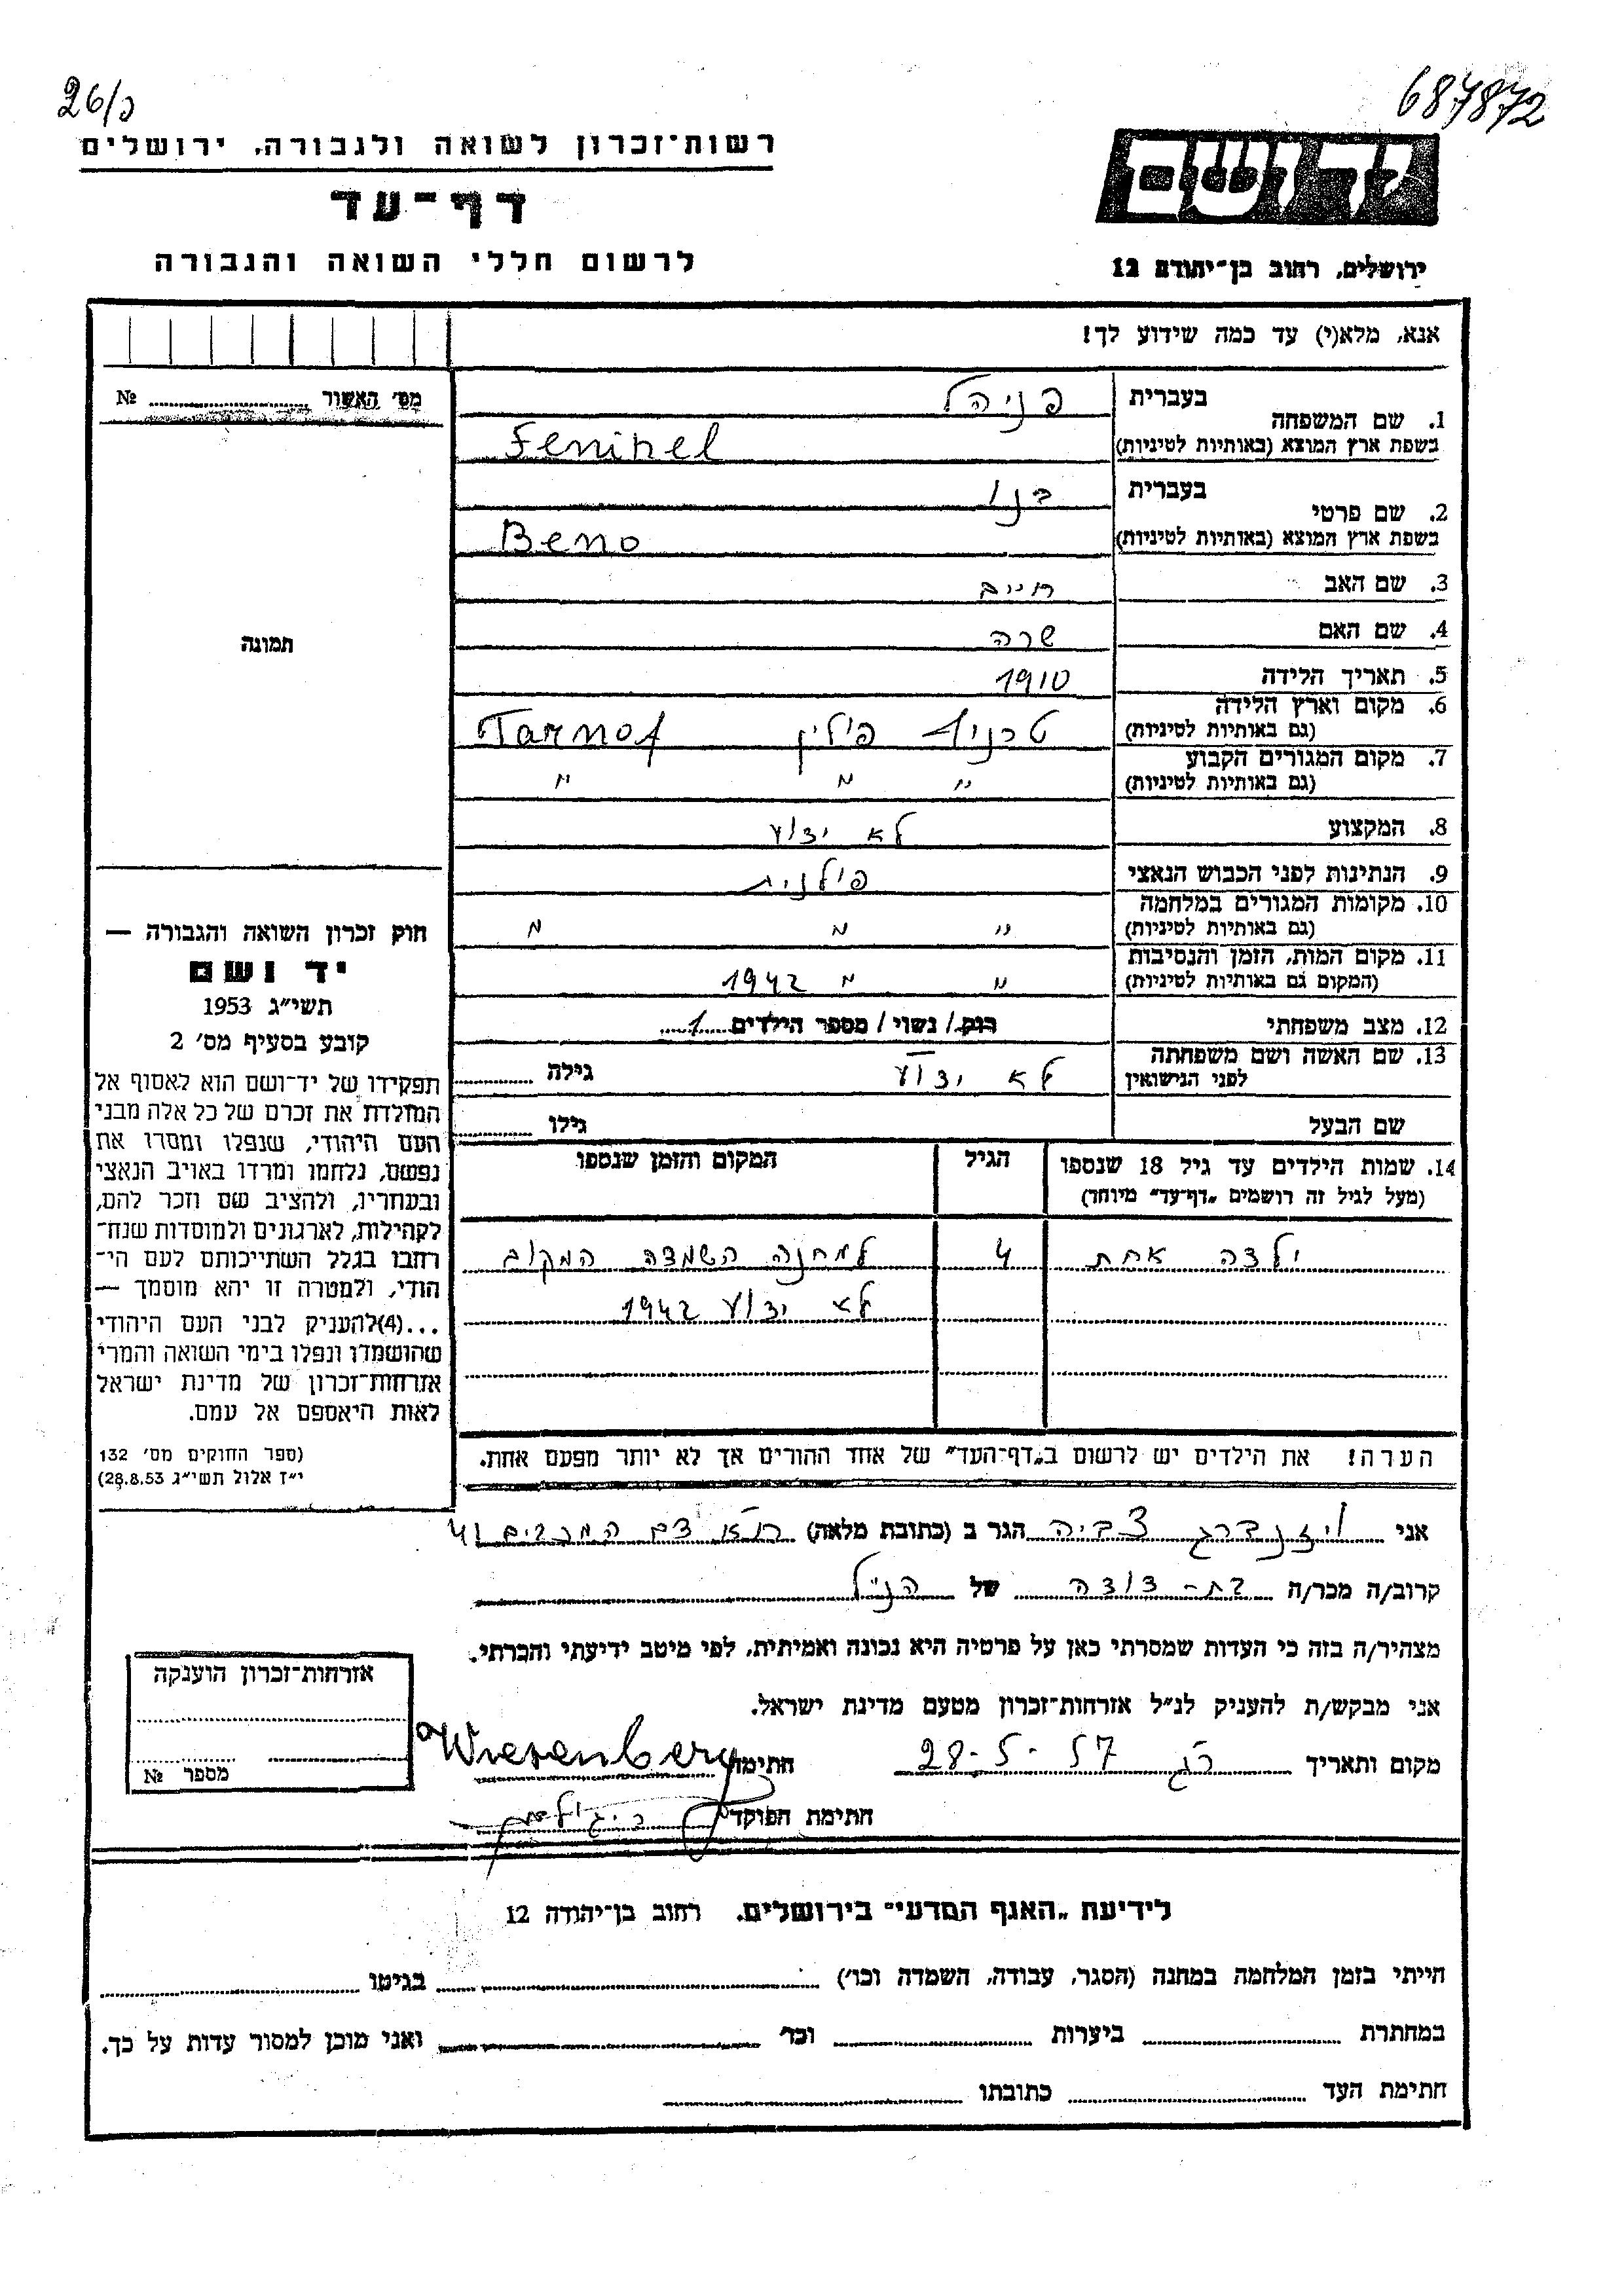 26/כ
687872
רשות־זכרון לשואה ולגבורה, ירושלים
דף־עד
לרשום חללי השואה והגבורה
ידושם
ירושלים, רחוב בן־יהודה 12
אנא, מלא(י) עד כמה שידוע לך!
מס' האשור № 
1. שם המשפחה
בעברית פניהל
בשפת ארץ המוצא (באותיות לטיניות) Fenihel
2. שם פרטי
בעברית בנו
בשפת ארץ המוצא (באותיות לטיניות) Beno
3. שם האב חיים
4. שם האם שרה
5. תאריך הלידה 1910
6. מקום וארץ הלידה (גם באותיות לטיניות) טרנוף פולין Tarnof
7. מקום המגורים הקבוע (גם באותיות לטיניות) " " "
8. המקצוע לא ידוע
9. הנתינות לפני הכבוש הנאצי פולנית
10. מקומות המגורים במלחמה (גם באותיות לטיניות) " " "
11. מקום המות, הזמן והנסיבות (המקום גם באותיות לטיניות) " " 1942
12. מצב משפחתי רווק/ נשוי/ מספר הילדים 1
13. שם האשה ושם משפחתה לפני הנישואין לא ידוע גילה
שם הבעל גילו
14. שמות הילדים עד גיל 18 שנספו (מעל לגיל זה רושמים "דף־עד" מיוחד) הגיל המקום והזמן שנספו
ילדה אחת 4 למחנה השמדה המקום
לא ידוע 1942
הערה! את הילדים יש לרשום ב"דף־העד" של אחד ההורים אך לא יותר מפעם אחת.
תמונה
חוק זכרון השואה והגבורה —
יד ושם
תשי"ג 1953
קובע בסעיף מס' 2
תפקידו של יד־ושם הוא לאסוף אל
המולדת את זכרם של כל אלה מבני
העם היהודי, שנפלו ומסרו את
נפשם, נלחמו ומרדו באויב הנאצי
ובעוזריו, ולהציב שם וזכר להם,
לקהילות, לארגונים ולמוסדות שנח־
רבו בגלל השתייכותם לעם הי־
הודי, ולמטרה זו יהא מוסמך —
...(4)להעניק לבני העם היהודי
שהושמדו ונפלו בימי השואה והמרי
אזרחות־זכרון של מדינת ישראל
לאות היאספם אל עמם.
(ספר החוקים מס' 132
י"ז אלול תשי"ג 28.8.53)
אני ויזנברג צביה הגר ב (כתובת מלאה)
קרוב/ה מכר/ה בת-דודה של הנ"ל
מצהיר/ה בזה כי העדות שמסרתי כאן על פרטיה היא נכונה ואמיתית, לפי מיטב ידיעתי והכרתי.
אני מבקש/ת להעניק לנ"ל אזרחות־זכרון מטעם מדינת ישראל.
מקום ותאריך רג 28-5-57 חתימה Wiesenberg
חתימת הפוקד
אזרחות־זכרון הוענקה
מספר №
לידיעת "האגף המדעי" בירושלים, רחוב בן־יהודה 12
הייתי בזמן המלחמה במחנה (הסגר, עבודה, השמדה וכו') בגיטו
במחתרת ביערות וכו' ואני מוכן למסור עדות על כך.
חתימת העד כתובתו